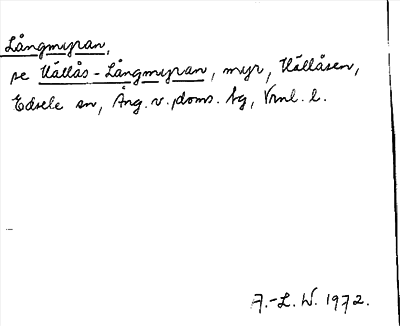 Långmyran,
se Källås-Långmyran, myr, Källåsen,
Edsele sn, Ång. v. doms. bg, Vrnl. l.
A.-L. W. 1972.